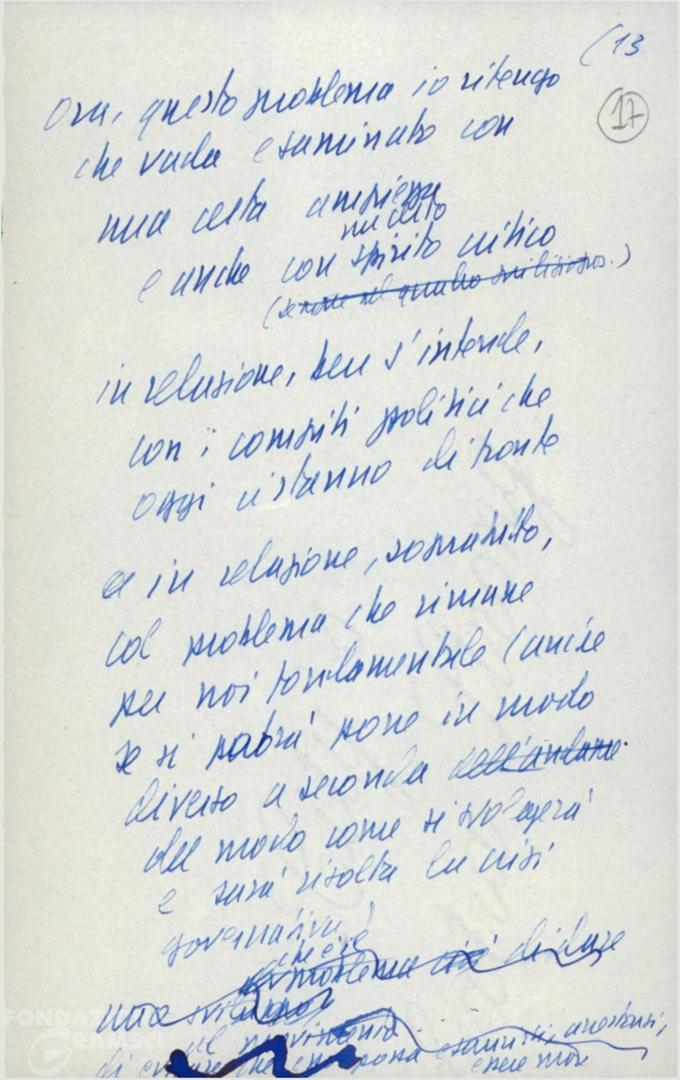 (13
17
Ora, questo problema io ritengo
che vada esaminato con
una certa ampiezza
e anche con molto spirito critico
(se non nel quadro
in relazione, ben s'intende,
con i compiti politici che
oggi ci stanno di fronte
e in relazione, soprattutto,
col problema che rimane
per noi fondamentale (anche
se si potrà porre in modo
diverso a seconda dell'andam.
del modo come si svolgerà
e sarà risolta la crisi
governativa)
che è il problema cioè di dare
uno sviluppo
al movimento
di evitare che possa esaurirsi, arrestarsi,
essere
FONDAZ
GRAMSCI